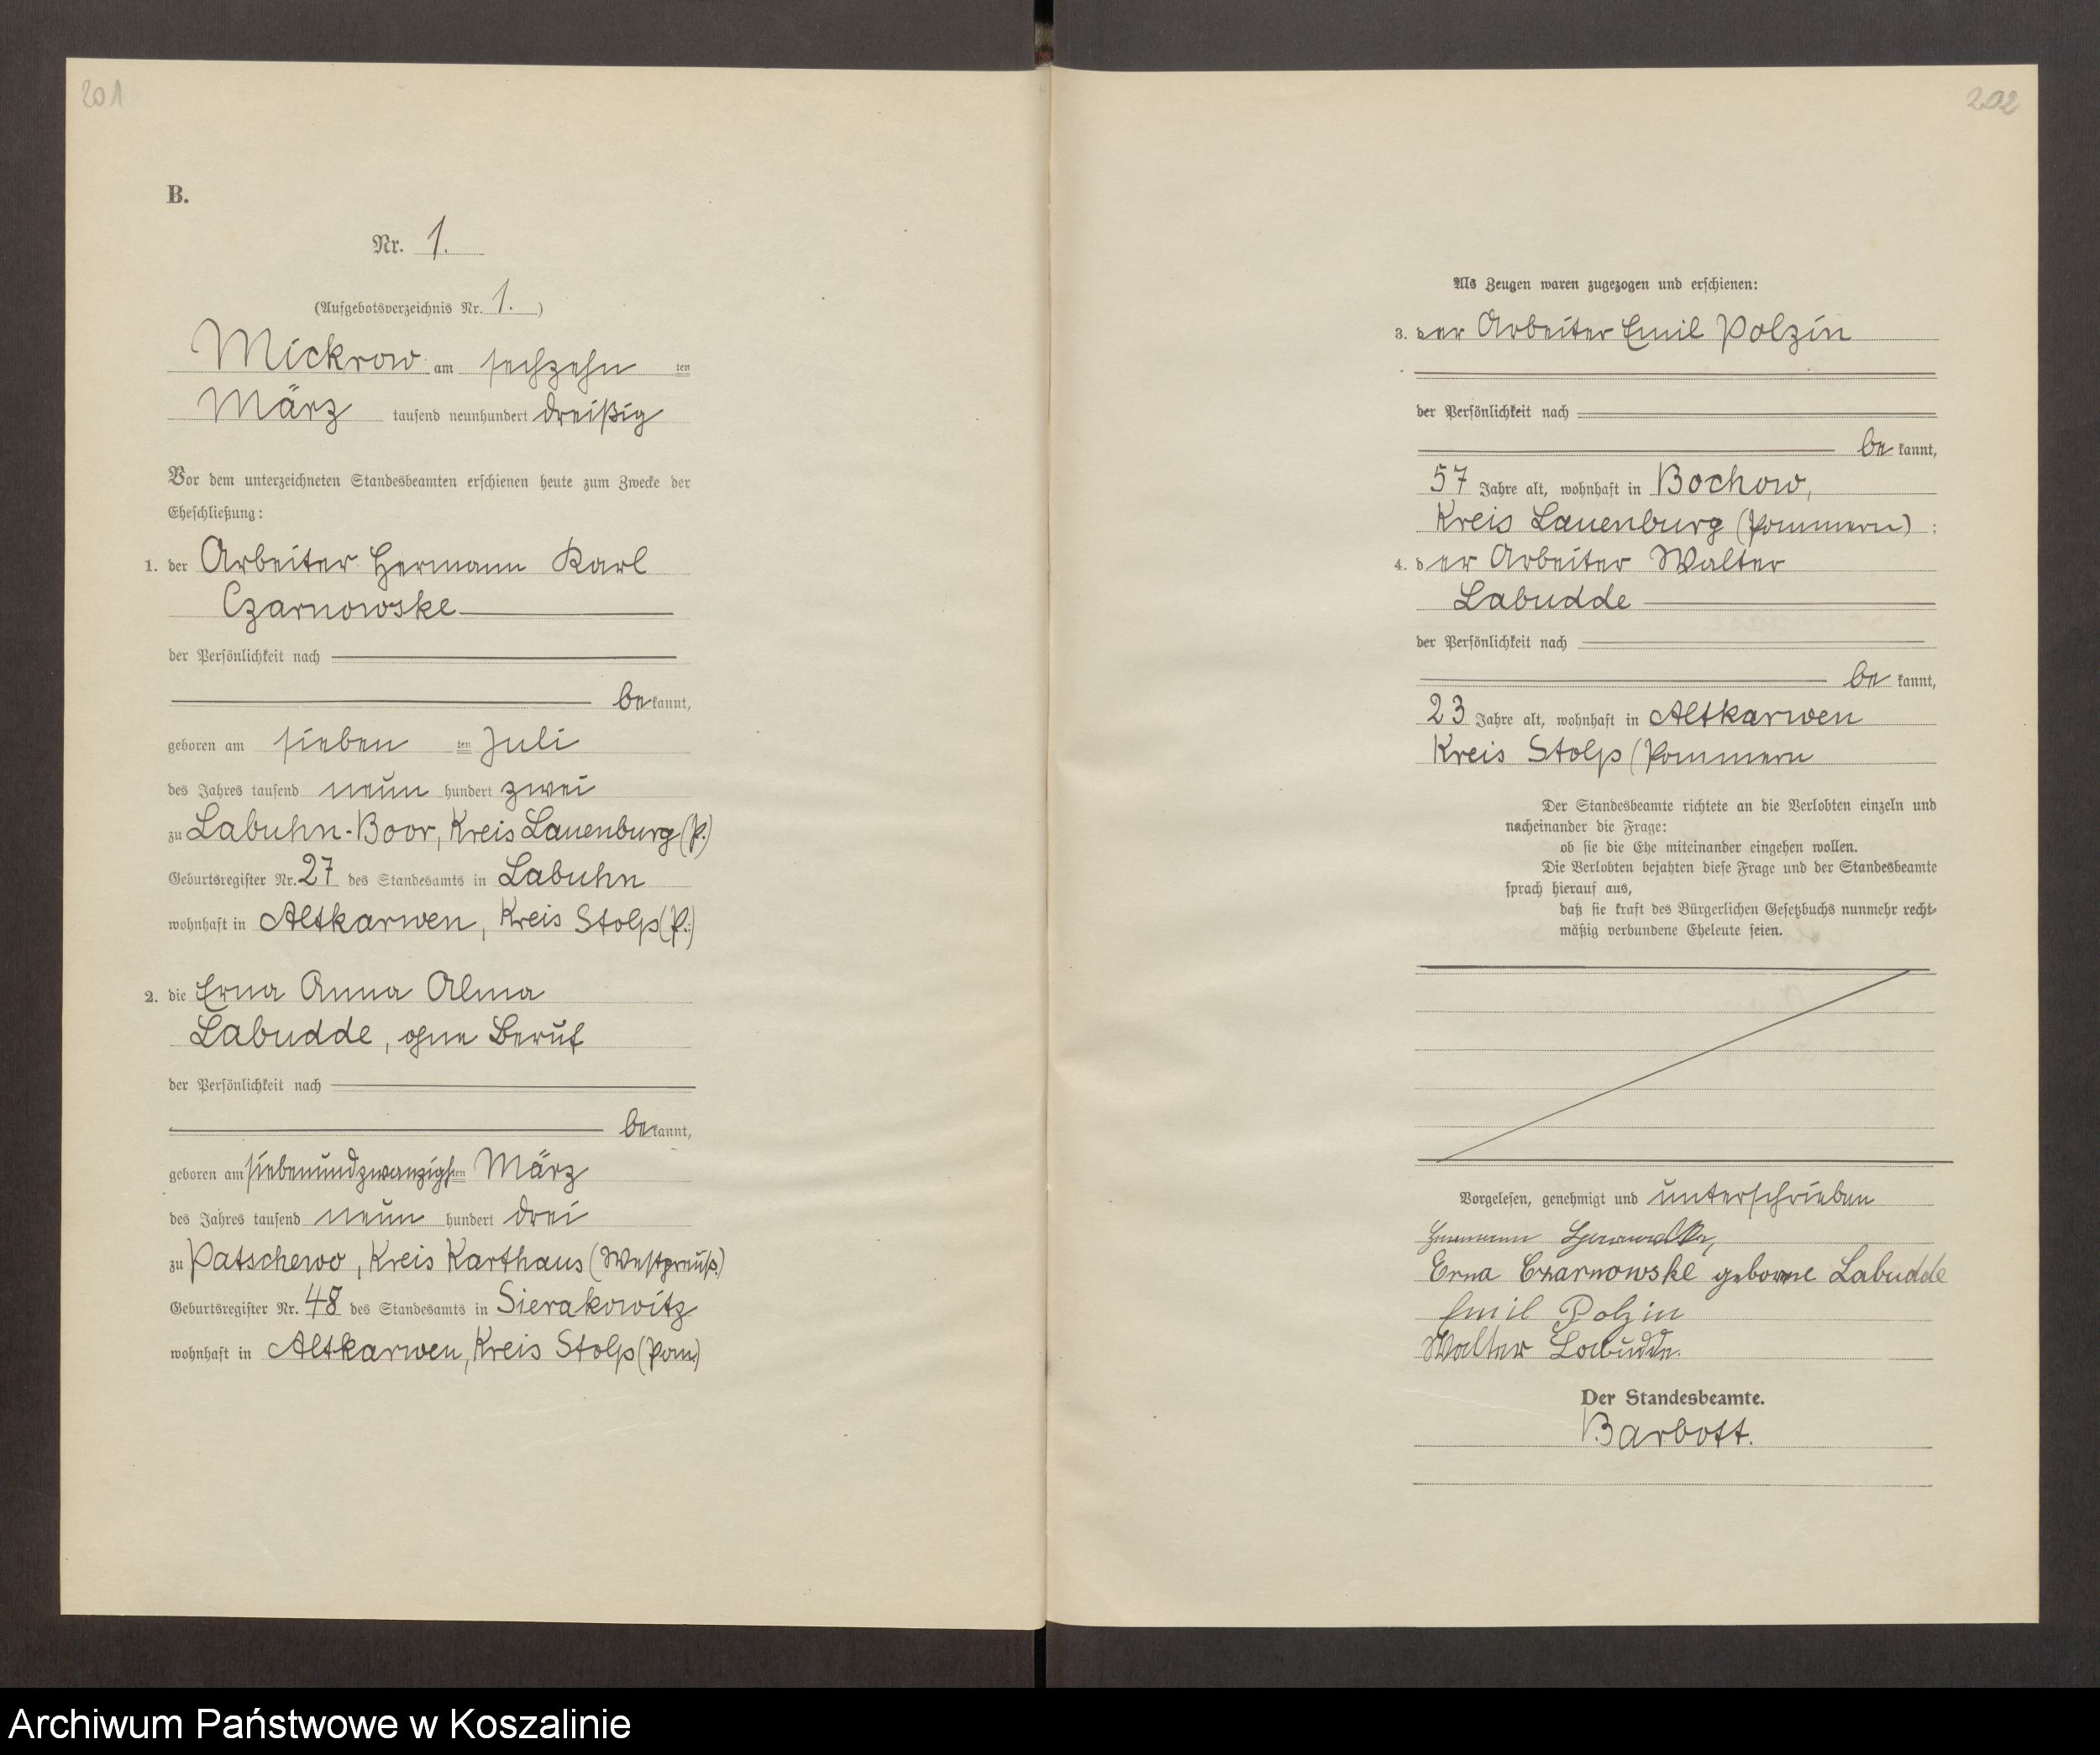 201
B.
Nr. 1.
(Aufgebotsverzeichnis Nr. 1. )
Mickrow am sechzehn ten
März tausend neunhundert dreißig
Vor dem unterzeichneten Standesbeamten erschienen heute zum Zwecke der
Eheschließung:
1. der Arbeiter Hermann Karl
Czarnowske
der Persönlichkeit nach
be kannt,
geboren am sieben ten Juli
des Jahres tausend neun hundert zwei
zu Labuhn-Boor, Kreis Lauenburg (P.)
Geburtsregister Nr. 27 des Standesamts in Labuhn
wohnhaft in Altkarwen, Kreis Stolp (P.)
2. die Erna Anna Alma
Labudde, ohne Beruf
der Persönlichkeit nach
be kannt,
geboren am siebenundzwanzigsten März
des Jahres tausend neun hundert drei
zu Patschewo, Kreis Karthaus (Westpreuß.)
Geburtsregister Nr. 48 des Standesamts in Sierakowitz
wohnhaft in Altkarwen, Kreis Stolp (Pom.)
202
Als Zeugen waren zugezogen und erschienen:
3. der Arbeiter Emil Polzin
der Persönlichkeit nach
be kannt,
57 Jahre alt, wohnhaft in Bochow,
Kreis Lauenburg (Pommern) ;
4. der Arbeiter Walter
Labudde
der Persönlichkeit nach
be kannt,
23 Jahre alt, wohnhaft in Altkarwen
Kreis Stolp (Pommern
Der Standesbeamte richtete an die Verlobten einzeln und
nacheinander die Frage:
ob sie die Ehe miteinander eingehen wollen.
Die Verlobten bejahten diese Frage und der Standesbeamte
sprach hierauf aus,
daß sie kraft des Bürgerlichen Gesetzbuchs nunmehr recht-
mäßig verbundene Eheleute seien.
Vorgelesen, genehmigt und unterschrieben
Hermann
Erna Czarnowske geborne Labudde
Emil Polzin
Walter Labudde.
Der Standesbeamte.
Barbott.
Archiwum Państwowe w Koszalinie